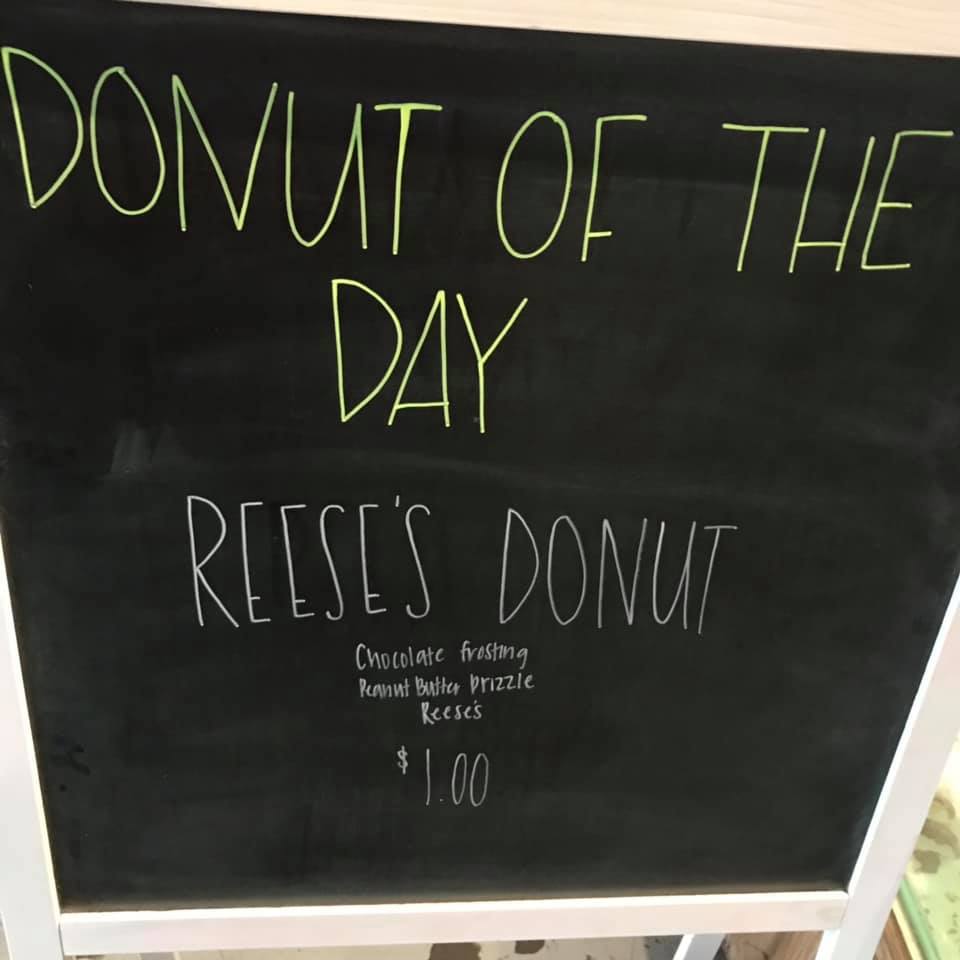 DONUT OF THE
DAY
REESE'S DONUT
Chocolate frosting
Peanut Butter Drizzle
Reese's
$1.00